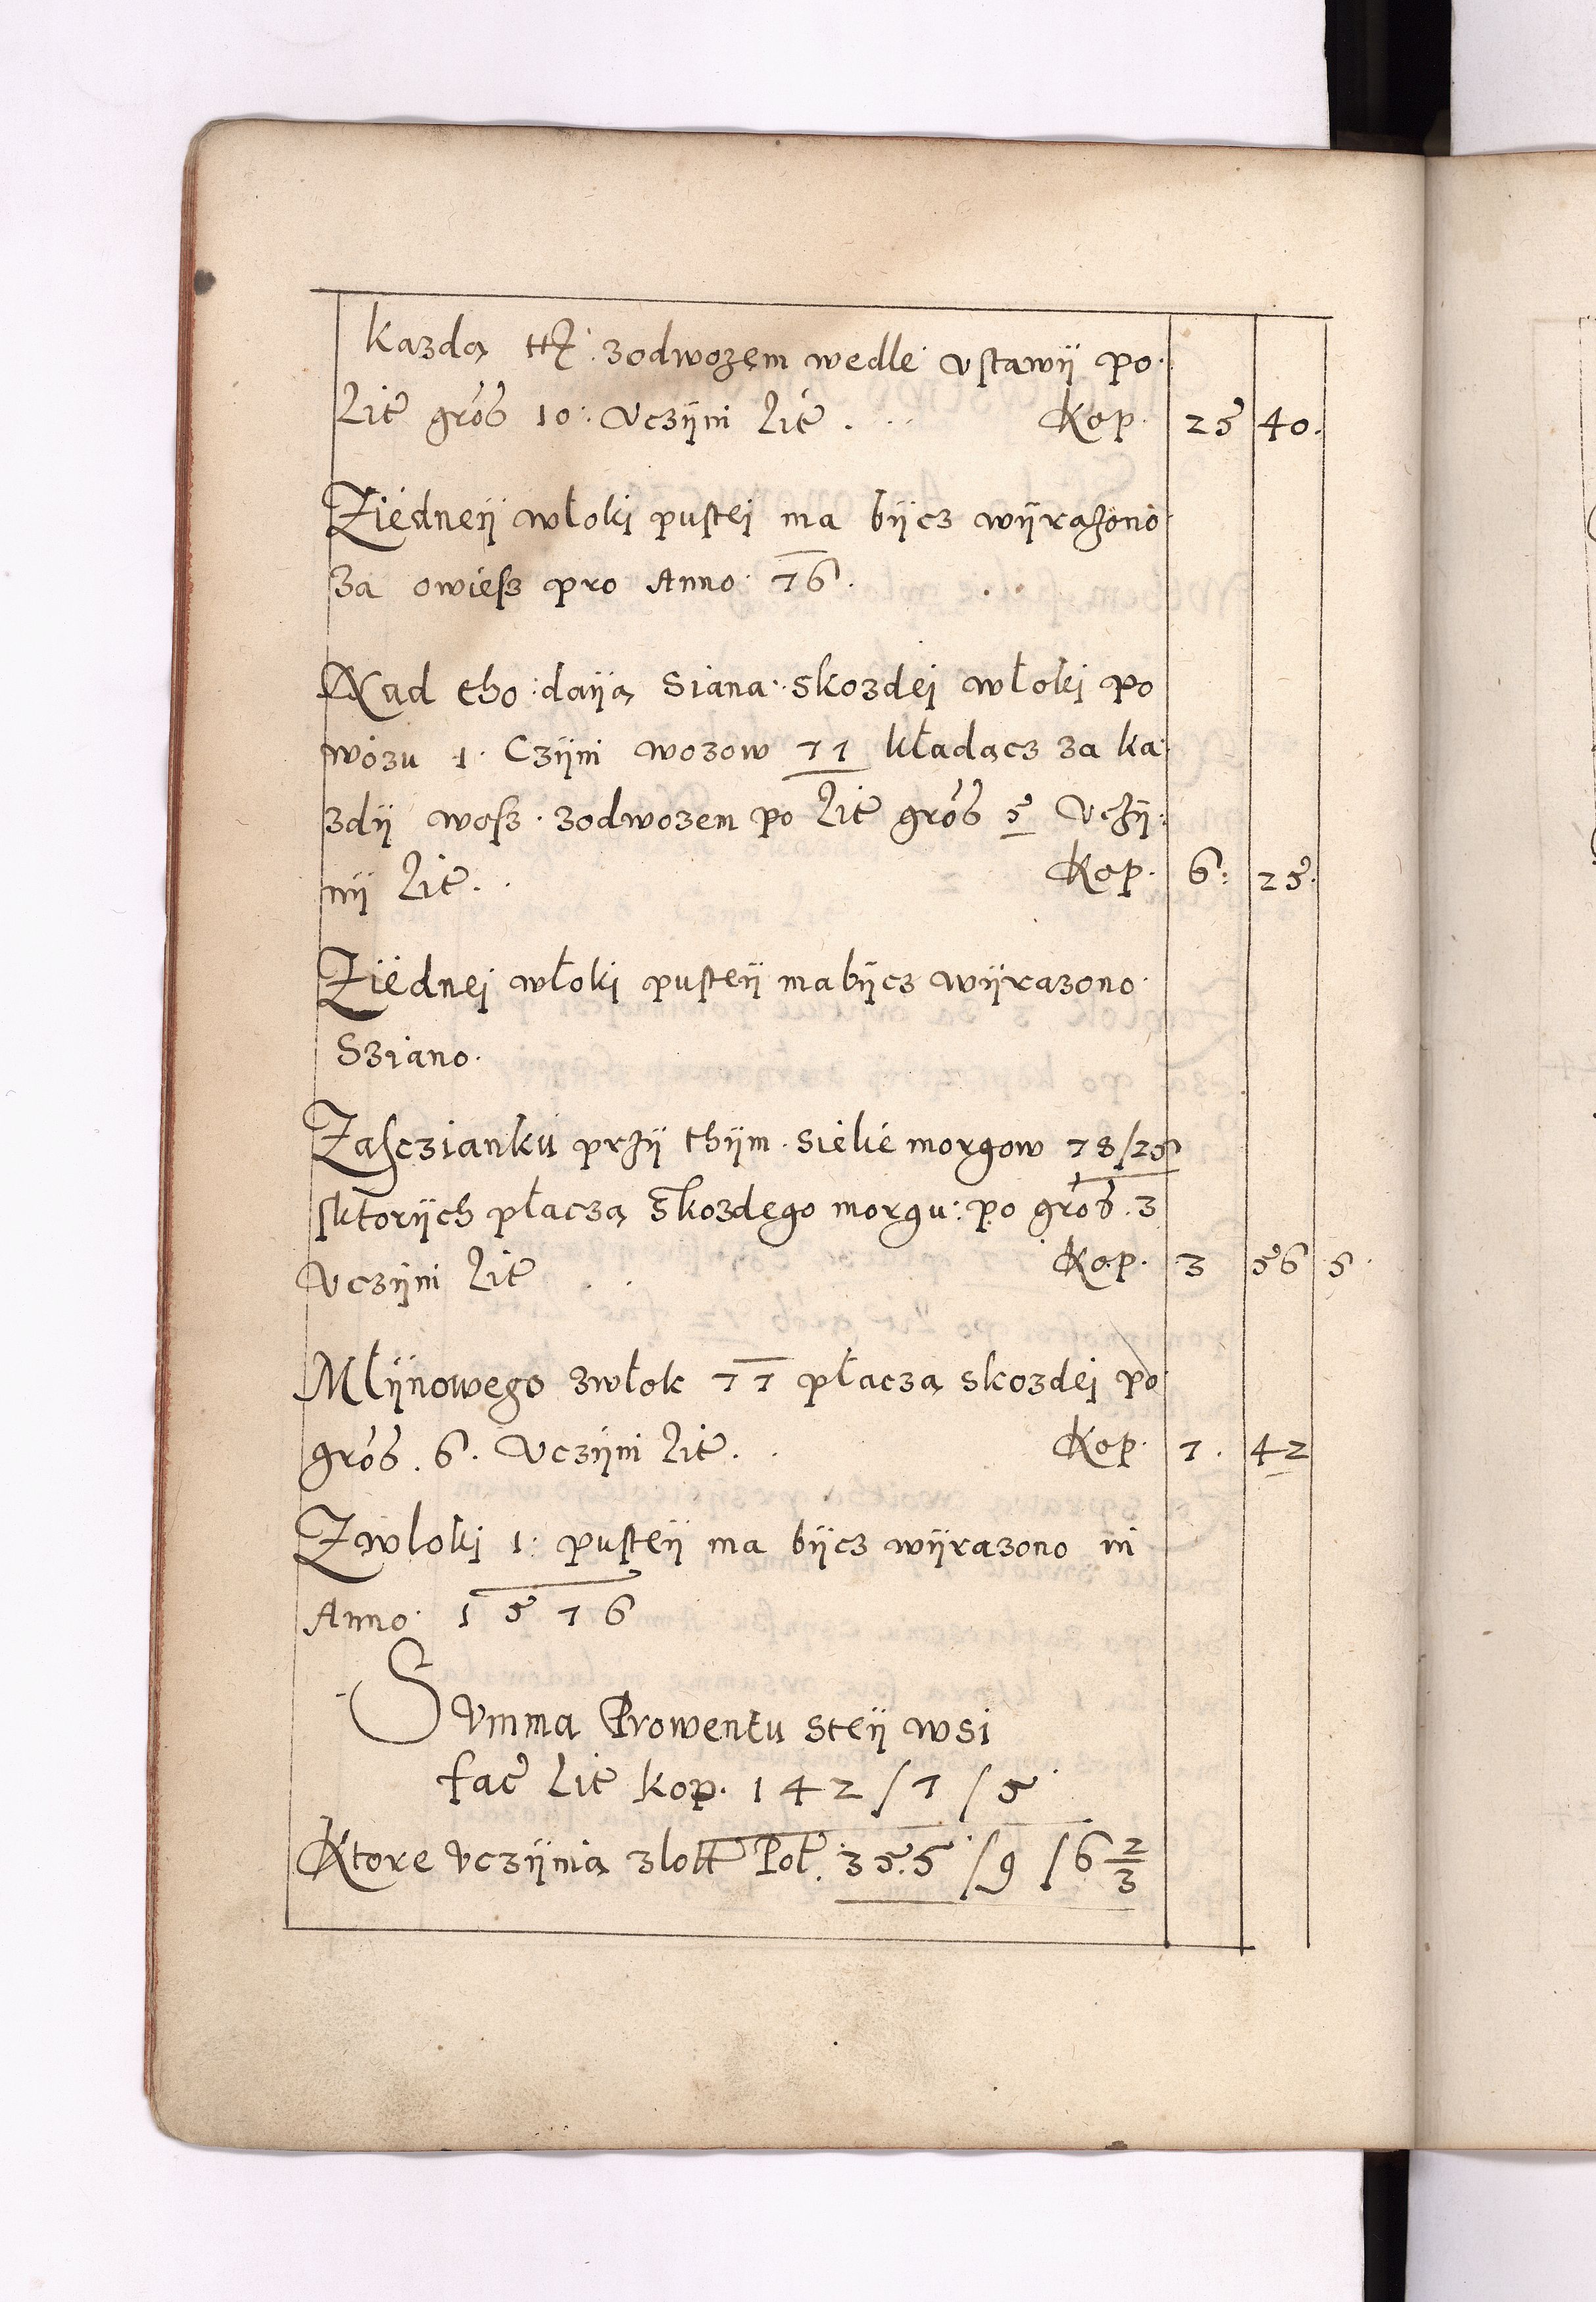 kazdą ttʒ zodwozęm wedle vstawÿ po
Lit̃ gros̃ 10: vczÿni Lit̃. Kop. 25 40.
Ziedneÿ włoki pustei ma bÿcz wÿrazono
za owiesz pro Anno 76.
Nad tho daÿą Siana skozdei włoki po
wozu 1. Czÿni wozow 77 kładącz za ka
zdÿ wosz zodwozem po Lit̃ gros̃ 5 vczÿ:
nÿ Lit̃. Kop. 6: 25.
Ziednei włoki pusteÿ mabÿcz wÿrazono
Sziano.
Zasczianku przÿ thÿm sielie morgow 78/25
sktorÿch płaczą skozdego morgu: po gros̃. 3
vczÿni Lit̃ Kop. 3 56 5.
Młÿnowego zwłok 77 płaczą skozdei po
gros̃. 6. vczÿni Lit̃. Kop. 7. 42
Zwloki 1: pusteÿ ma bÿcz wÿrazono in
Anno 1576
Svmma Prowentu steÿ wsi
fac̃ Lit̃ kop. 142/7/5
Ktore vczÿnią złott Pol. 355/9/6 2/3